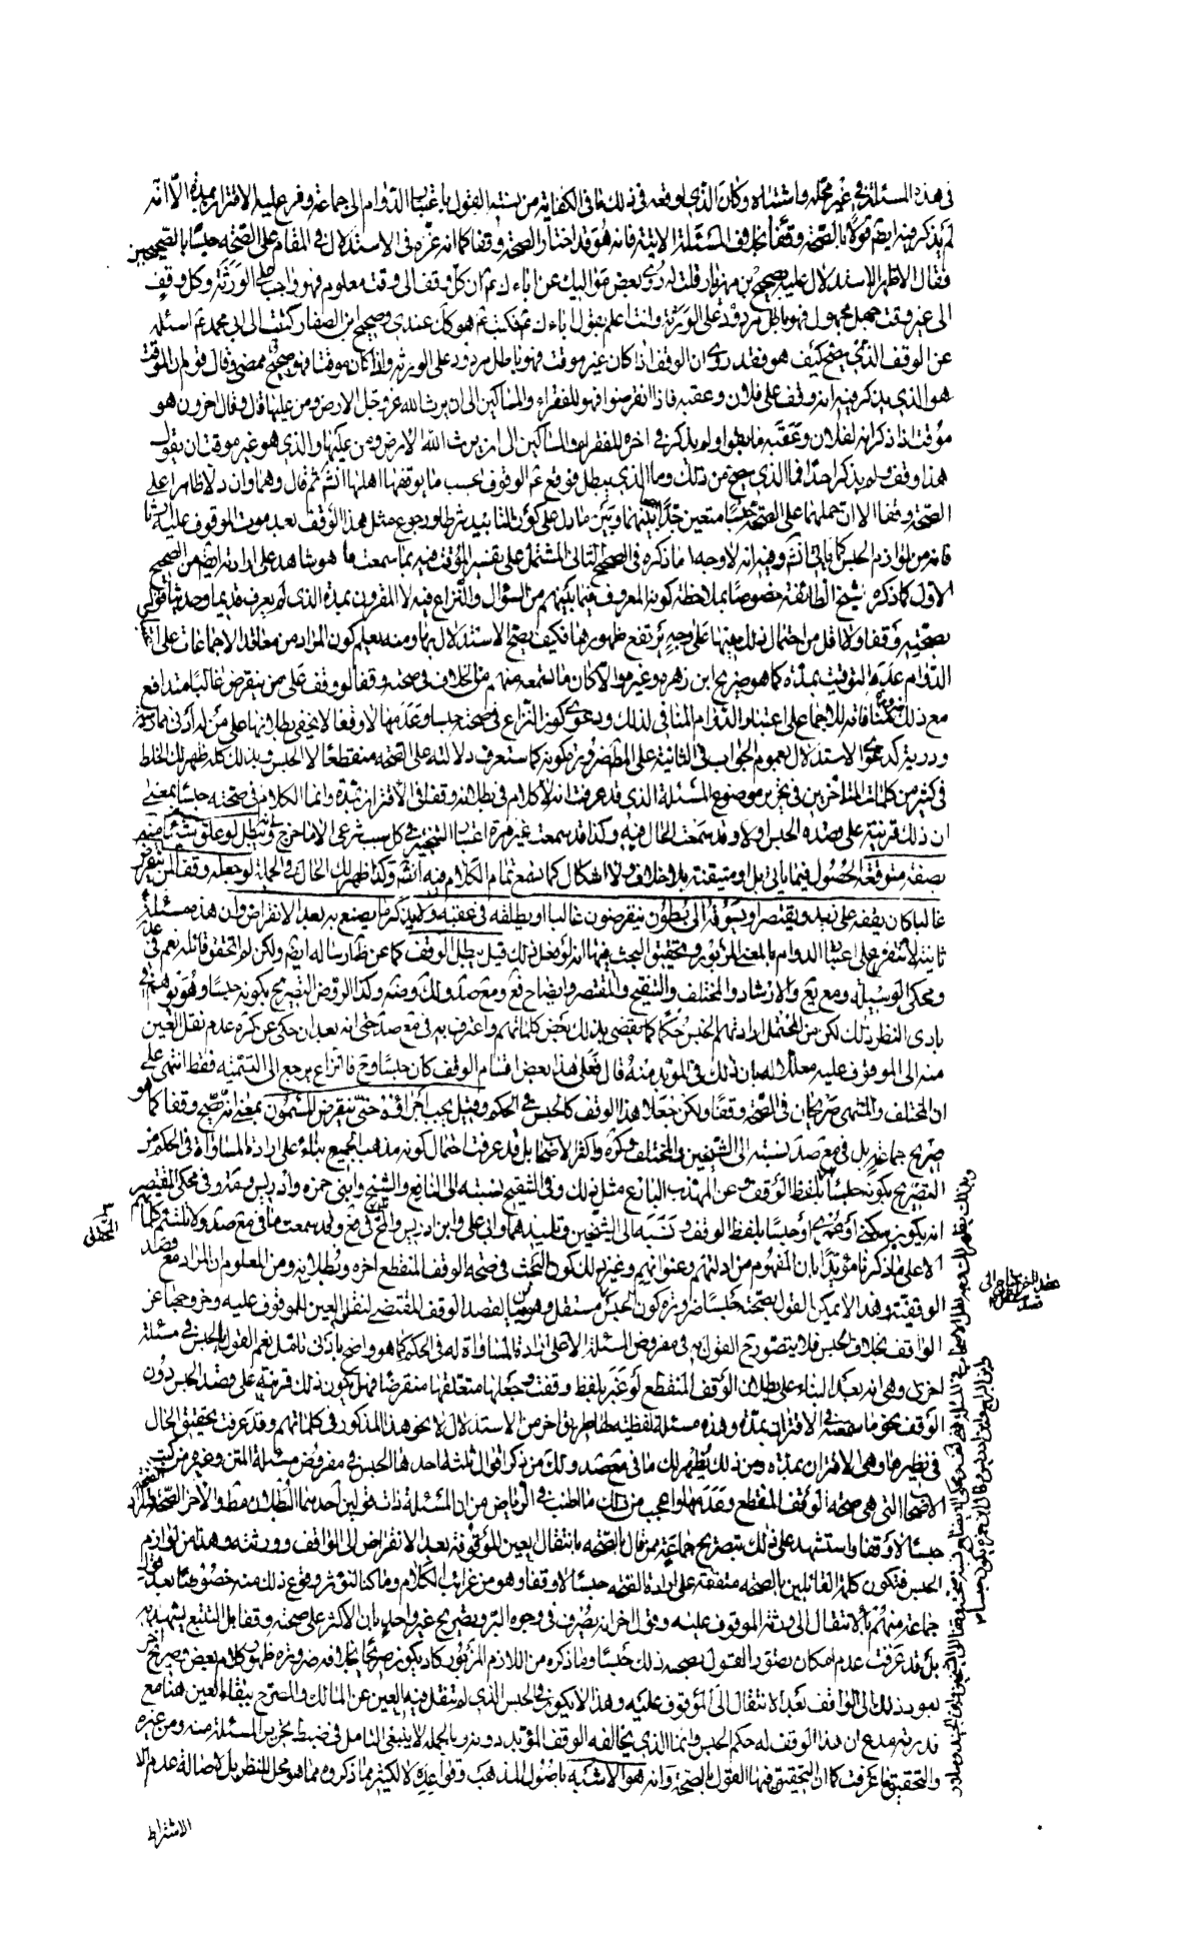 في هذه المسئلة في غير محله واشتباه وكان الذي اوقعه في ذلك ما في الكفاية من نسبته القول باعتبار الدوام الى جماعة وفرع عليه الاقتران بمدة الا انه
لم يذكر فيه ايضا قولا بالصحة وقفا بخلاف المسئلة الاتية فانه هو قد اختار الصحة وقفا كما انه غره في الاستدلال في المقام على الصحة حبسا بالصحيحين
فقال الاظهر الاستدلال عليه بصحيح بن مهزيار قلت له روى بعض مواليك عن اباءك ع ان كل وقف الى وقت معلوم فهو واجب على الورثة وكل وقف
الى غير وقت جهل مجهول فهو باطل مردود على الورثة وانت اعلم بقول اباءك ع فكتب ع هو كل عندي وصحيح ابن الصفار كتبت الى ابي محمد ع اسئله
عن الوقف الذي يصح كيف هو فقد روى ان الوقف اذا كان غير موقت فهو باطل مردود على الورثة واذا كان موقتا فهو صحيح ممضى وقال قوم ان الموقت
هو الذي يذكر فيه انه وقف على فلان وعقبه فاذا انقرضوا فهو للفقراء والمساكين الى ان يرث الله عز وجل الارض ومن عليها قال وقال اخرون هو
موقت اذا ذكر انه لفلان وعقبه ما بقوا ولم يذكر في اخره للفقراء والمساكين الى ان يرث الله الارض ومن عليها والذي هو غير موقت ان يقول
هذا وقف ولم يذكر احدا فما الذي يصح من ذلك وما الذي يبطل فوقع ع الوقوف بحسب ما يوقفها اهلها انش ثم قال وهما وان دلا ظاهرا على
الصحة وقفا الا ان حملهما على الصحة حبسا متعين جدا بينهما وبين ما دل على كون التابيد شرطا ورجوع مثل هذا الوقف بعد موت الموقوف عليه
فانه من لوازم الحبس كما ياتي انش وفيه انه لا وجه لما ذكره في الصحيح الثاني المشتمل على تفسير الموقت فيه بما سمعت ما هو شاهد على ارادته ايضا من الصحيح
الاول كما ذكره شيخ الطائفة خصوصا بملاحظة كونه المعروف فيما بينهم من السؤال والنزاع فيه لا المقرون بمدة الذي لم يعرف
بصحته وقفا ولا اقل من احتمال ذلك فيهما على وجه يرتفع ظهورهما فكيف يصح الاستدلال بهما ومنه يعلم كون المراد من معاقد الاجماعات على
الدوام عدم التوقيت بمدة كما هو صريح ابن زهرة وغيره والا كان ما تسمعه منهم من الخلاف في صحته وقفا لو وقف على من ينقرض غالبا متدافع
مع ذلك فانه للاجماع على اعتبار الدوام المنافي لذلك ودعوى كون النزاع في صحته حبسا وعدمها لا وقفا لا يخفى بطلانها على من له ادنى
ودرية كدعوى الاستدلال بعموم الجواب في الثانية على المط ضرورة كونه كما ستعرف دلالته على الصحة منقطعا لا الحبس وبذلك كله ظهر لك الخلط
في كثير من كلمات المتاخرين في تحرير موضوع المسئلة الذي قد عرفت انه لا كلام في بطلانه وقفا في الاقتران بمدة وانما الكلام في صحته حبسا بمعنى
ان ذلك قرينة على قصده الحبس اولا وقد سمعت الحال فيه وكذا قد سمعت غير مرة اعتبار التنجيز في كل سبب شرعي الا ما خرج فيبطل لو علق بشيئا منه
بصفة متوقعة الحصول فيما ياتي بل ومتيقنة بلا خلاف ولا اشكال كما تسمع تمام الكلام فيه انش وكذا ظهر لك الحال في الجملة لو جعله وقفا لمن ينقرض
غالبا كان يقفه على زيد ويقتصر او يسوقه الى بطون ينقرضون غالبا او يطلقه في عقبه ولا يذكر ما يصنع به بعد الانقراض وان هذه مسئلة
ثانية لا تتفرع على اعتبار الدوام بالمعنى المزبور وتحقيق البحث فيها انه لو فعل ذلك قيل يبطل الوقف كما عن ظاهر سالة ايضا ولكن لم اتحقق قائله نعم في
ومحكي الوسيلة ومع يع وعد والارشاد والمختلف والتنقيح والمقتصر وايضاح فع ومع صد ولك وضه وكذا الروض التصريح بكونه حبسا وهو
بادى النظر ذلك لكن من المحتمل ارادتهم الحبس حكما كما يقضي بذلك بعض كلماتهم واعترف به في مع صد حتى انه بعد ان حكى عن كرة عدم نقل العين
منه الى الموقوف عليه معللا له بان ذلك في المؤبد منه قال فعلى هذا بعض اقسام الوقف كان حبسا وح فالنزاع يرجع الى التسمية فقط انتهى على
ان المختلف والمنتهى صريحان في الصحة وقفا ولكن جعلا هذا الوقف كالحبس في الحكم وقيل يجب اجرائه حتى ينقرض المسمون بمعنى انه يصح وقفا كما هو
صريح جماعة بل في مع صد نسبته الى الشيخين والمختلف وكرة واكثر الاصحاب بل قد عرفت احتمال كونه مذهب الجميع بناء على ارادة المساواة في الحكم من
التصريح بكونه حبسا بلفظ الوقف وعن المهذب البارع مثل ذلك وفي التنقيح نسبته الى النافع والشيخ وابني حمزة وادريس وعد وفي محكي المقتصر
انه يكون سكنى او عمرى او حبسا بلفظ الوقف ونسبه الى الشيخين وتلميذهما وابي علي وابن ادريس والمح في فع وقد سمعت ما في مع صد ولا تلتئم كلماتهم
الا على ما ذكرنا مؤيدا بان المفهوم من ادلتهم وعنوانهم وغيره لكون البحث في صحة الوقف المنقطع اخره وبطلانه ومن المعلوم ان المراد مع قصد
الوقفية وهذا لا يمكن القول بصحته حبسا ضرورة كون الحبس مستقل وهو القصد الوقف المقتضى لنقل العين للموقوف عليه وخروجها عن
الواقف بخلاف الحبس فلا يتصور ح القول به في مفروض المسئلة الا على ارادة المساواة له في الحكم كما هو واضح بادنى تامل نعم القول بالحبس في مسئلة
اخرى وهي انه بعد البناء على بطلان الوقف المنقطع لو عبر بلفظ وقفت وجعلها متعلقها منقرضا فهل يكون ذلك قرينة على قصد الحبس دون
الوقف نحو ما سمعته في الاقتران بمدة وهذه مسئلة لفظية لها طريق اخر من الاستدلال لا نحو هذا المذكور في كلماتهم وقد عرفت تحقيق الحال
في نظيرها وهي الاقتران بمدة ومن ذلك يظهر لك ما في مع صد ولك من ذكر اقوال ثلثة احدها الحبس في مفروض مسئلة المتن وغيره من كتب
الاصحاب التي هي صحة الوقف المنقطع وعدمها واعجب من ذلك ما اطنب في الرياض من ان المسئلة ذات قولين احدهما البطلان مط والاخر الصحة
حبسا لا وقفا واستشهد على ذلك بتصريح جماعة ممن قال بالصحة بانتقال العين الموقوفة بعد الانقراض الى الواقف وورثته وهذا من لوازم
الحبس فتكون كلمة القائلين بالصحة متفقة على ارادة الصحة حبسا لا وقفا وهو من غرائب الكلام وما كنا لنؤثر وقوع ذلك منه خصوصا بعد
جماعة منهم بالانتقال الى ورثة الموقوف عليه وقول اخر انه يصرف في وجوه البر وتصريح غير واحد بان الاكثر على صحته وقفا بل التتبع يشهد به
بل قد عرفت عدم امكان تصور القول بصحة ذلك حبسا وما ذكره من اللازم المزبور كاد يكون صريحا بخلافه ضرورة ظهور كلام بعض وصريح اخر
لعود ذلك الى الواقف بعد الانتقال الى الموقوف عليه وهذا لا يكون في الحبس الذي لم تنتقل فيه العين عن المالك والمصرح ببقاء العين هنا مع
ندرته مدع ان هذا الوقف له حكم الحبس وانما الذي يخالفه الوقف المؤبد دونه وبالجملة لا ينبغي التامل في ضبط تحرير المسئلة منه ومن غيره
والتحقيق ما عرفت كما ان التحقيق فيها القول بالصحة وانه هو الاشبه باصول المذهب وقواعده لا لكثير مما ذكروه مما هو محل للنظر بل لاصالة عدم
الاشتراط